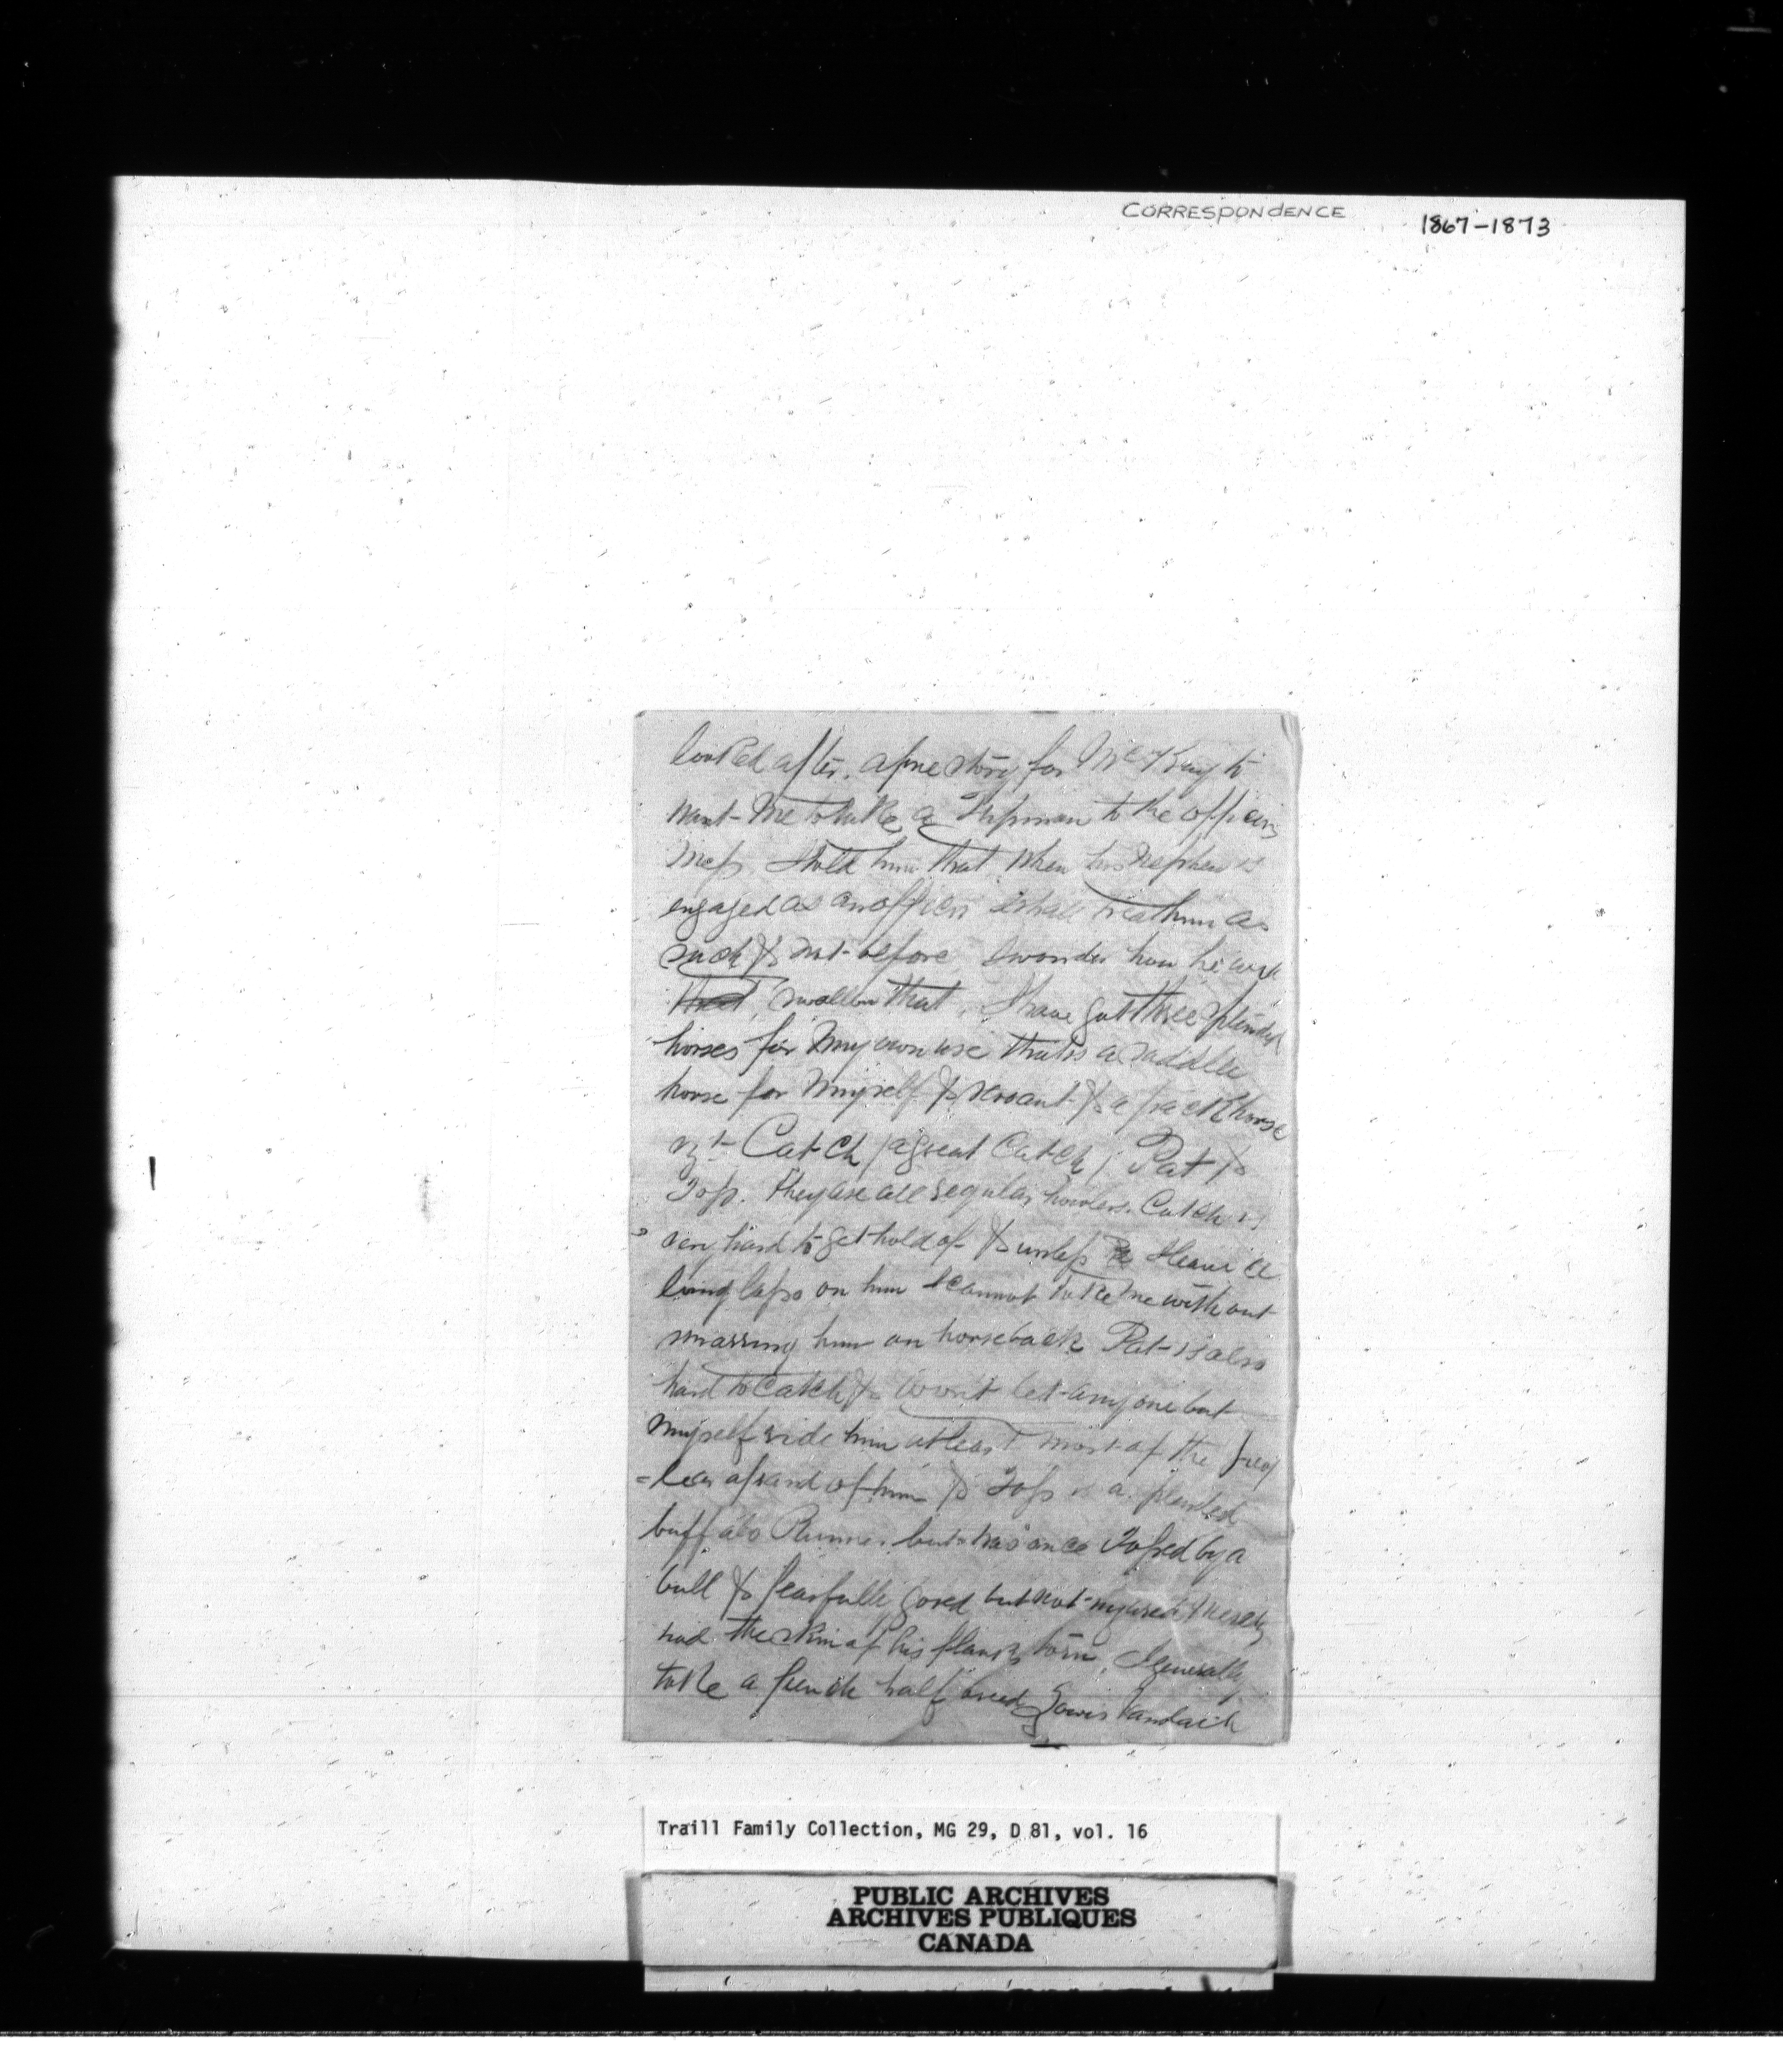 CORRESPONDENCE
1867-1873
looked after. a fine story for Mr McKay to
want me to take a Shipman to the officers
mess. I told him that when his nephew is
engaged as an officer I shall treat him as
such & not before I wonder how he will
that swallow that. I have got three splendid
horses for my own use that is a saddle
horse for myself & servant & a pack horse
vzt Catch (a great Catch) Pat &
Toss. they are all regular howlers. Catch is
very hard to get hold of & unless I leave a
long lasso on him I cannot take me without
snaring him on horseback Pat is also
hard to catch & wont let any one but
myself ride him at least most of the peop
=le are afraid of him & Toss is a splendid
buffalo Runner but was once Tossed by a
bull & fearfully gored but not injured merely
had the skin of his flanks torn. I generally
take a french half breed Lowis
Traill Family Collection, MG 29, D 81, vol. 16
PUBLIC ARCHIVES
ARCHIVES PUBLIQUES
CANADA